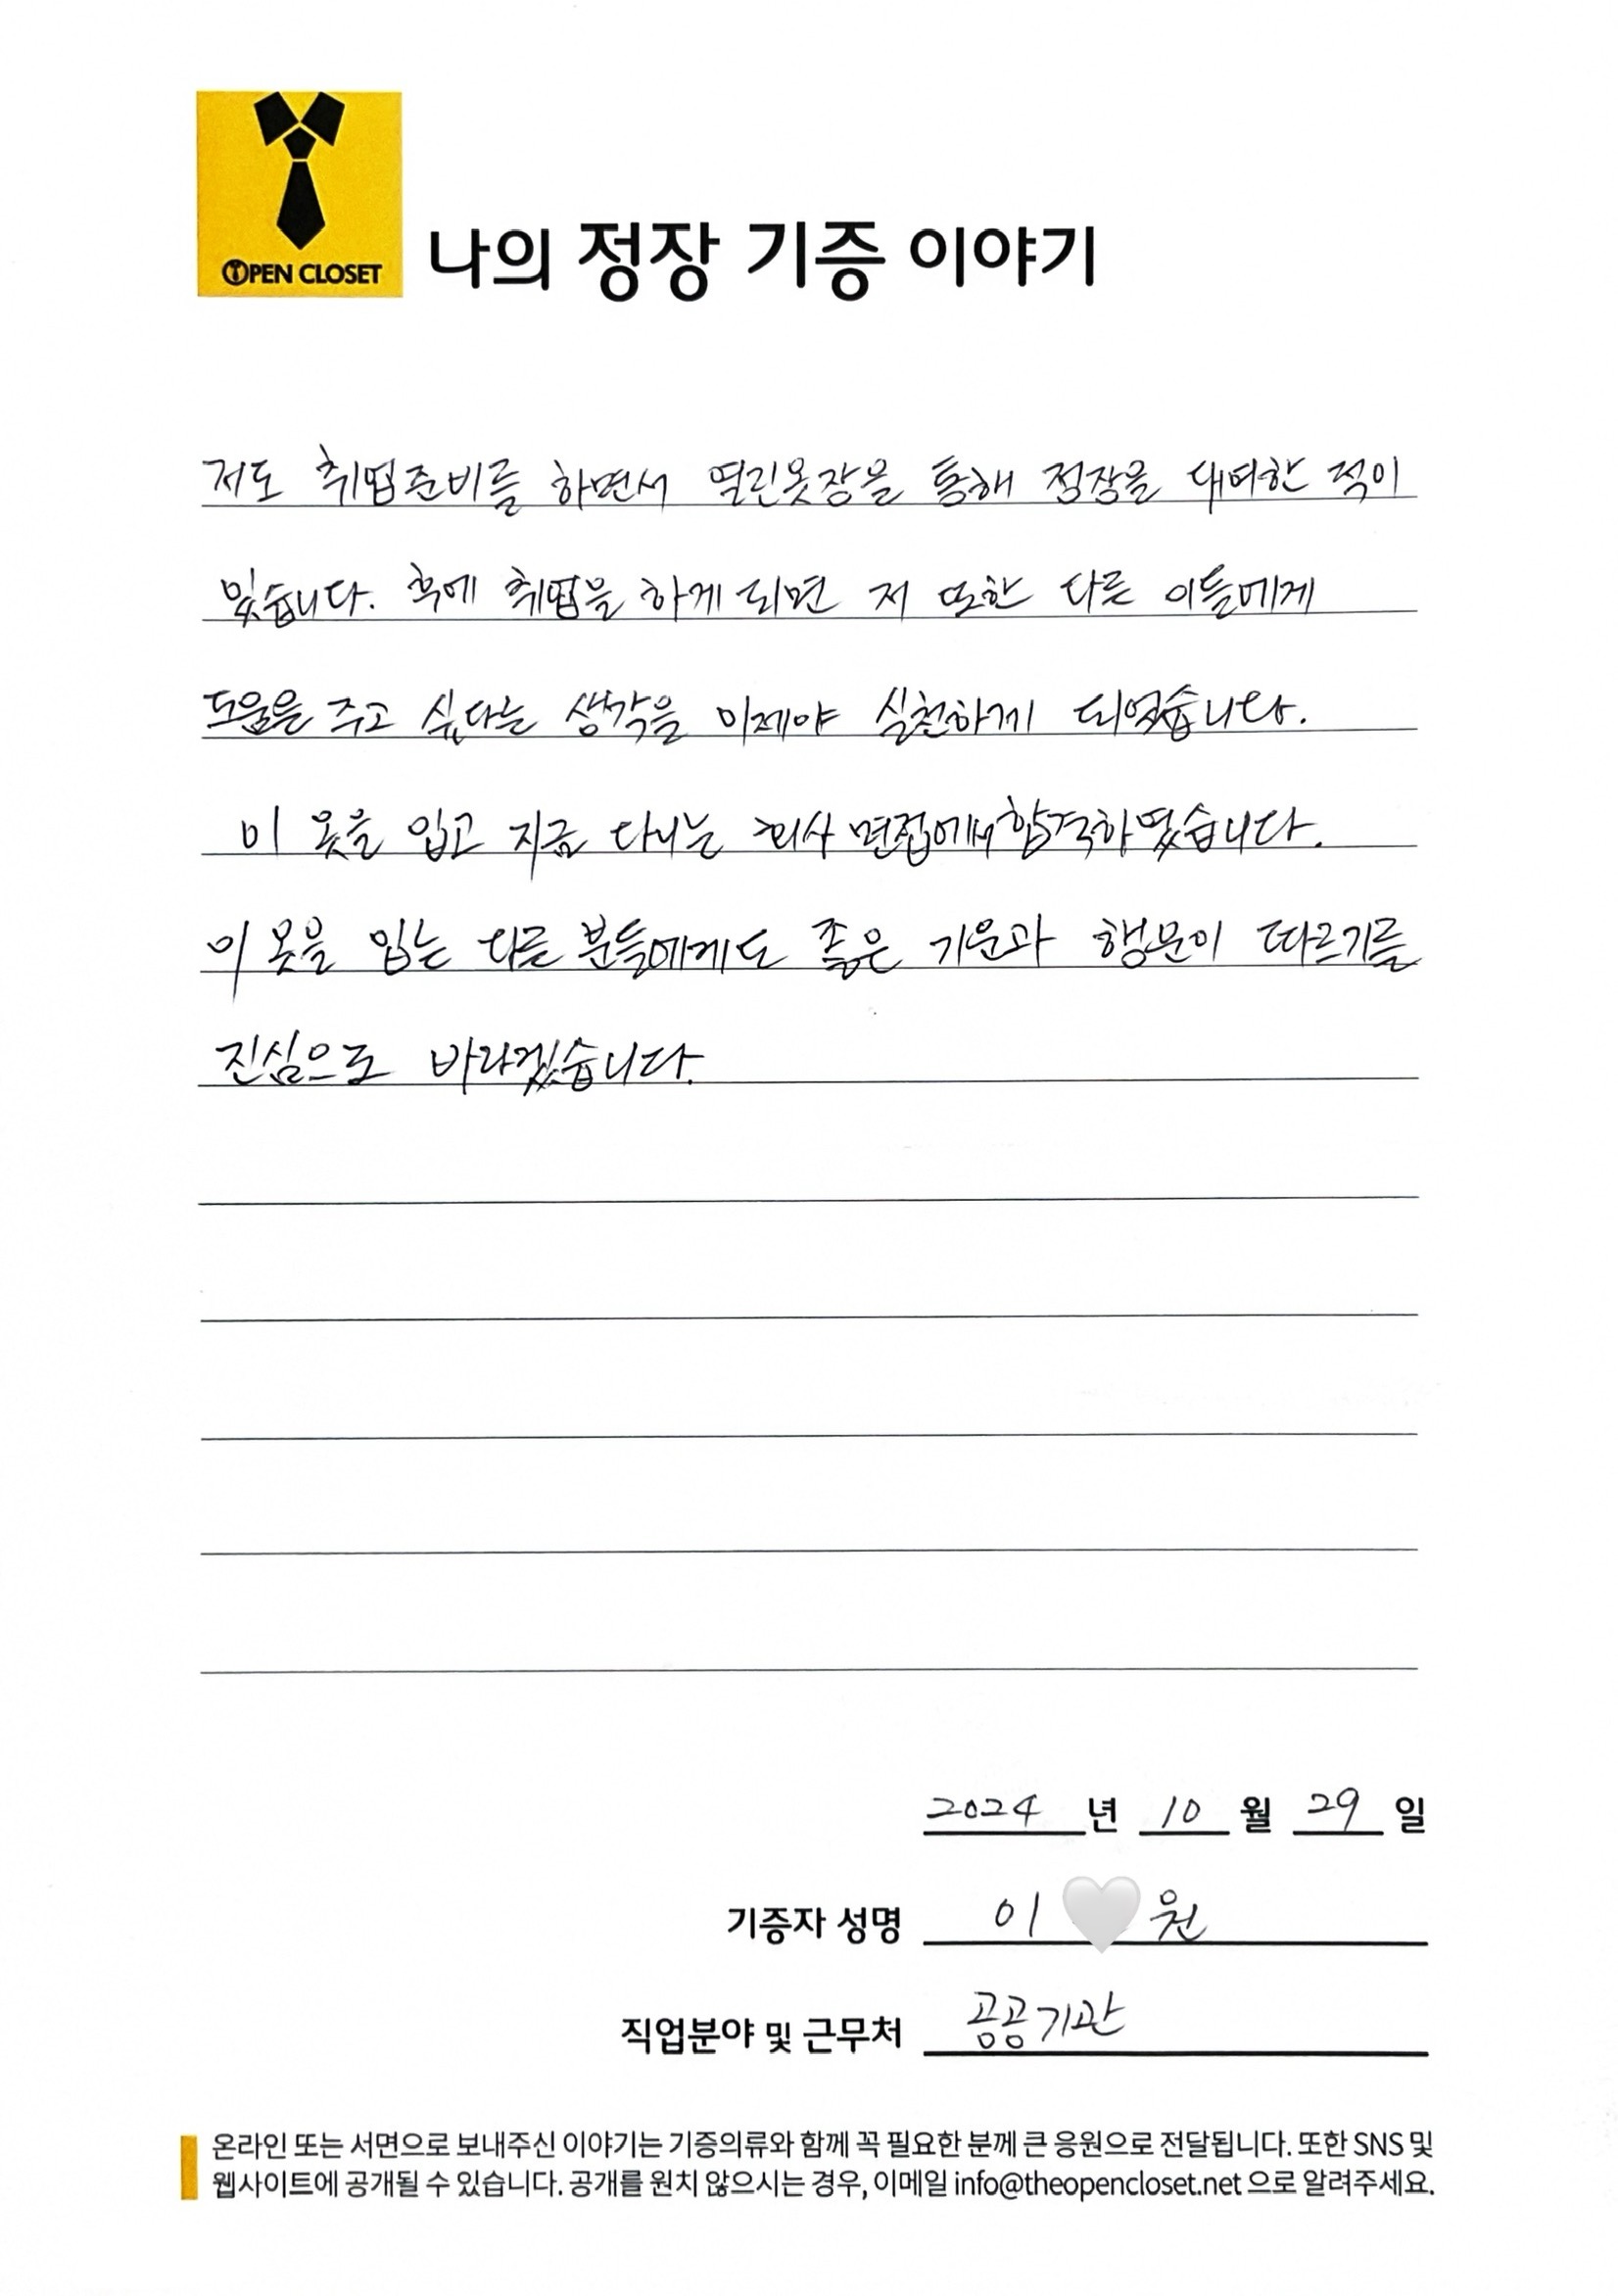 OPEN CLOSET
나의 정장 기증 이야기
저도 취업준비를 하면서 열린옷장을 통해 정장을 대여한 적이
있습니다. 후에 취업을 하게 되면 저 또한 다른 이들에게
도움을 주고 싶다는 생각을 이제야 실천하게 되었습니다.
이 옷을 입고 지금 다니는 회사 면접에서 합격하였습니다.
이 옷을 입는 다른 분들에게도 좋은 기운과 행운이 따르기를
진심으로 바라겠습니다.
2024 년 10 월 29 일
기증자 성명 이 원
직업분야 및 근무처 공공기관
온라인 또는 서면으로 보내주신 이야기는 기증의류와 함께 꼭 필요한 분께 큰 응원으로 전달됩니다. 또한 SNS 및
웹사이트에 공개될 수 있습니다. 공개를 원치 않으시는 경우, 이메일 info@theopencloset.net 으로 알려주세요.